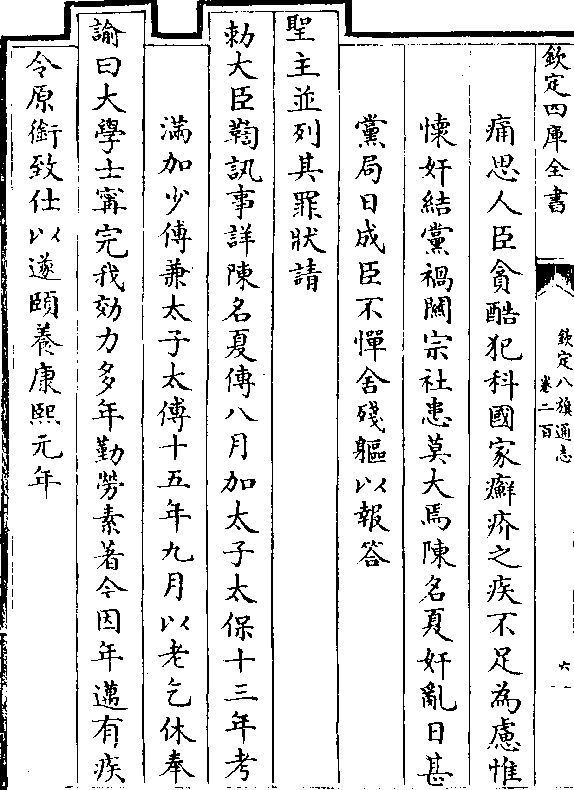 欽定四庫全書
欽定八旗通志
卷二百
六
痛思人臣貪酷犯科國家癬疥之疾不足為慮惟
懷奸結黨禍關宗社患莫大焉陳名夏奸亂日甚
黨局日成臣不憚舍殘軀以報答
聖主並列其罪狀請
勅大臣鞫訊事詳陳名夏傳八月加太子太保十三年考
滿加少傅兼太子太傅十五年九月以老乞休奉
諭曰大學士甯完我効力多年勤勞素著今因年邁有疾
令原銜致仕以遂頤養康熙元年